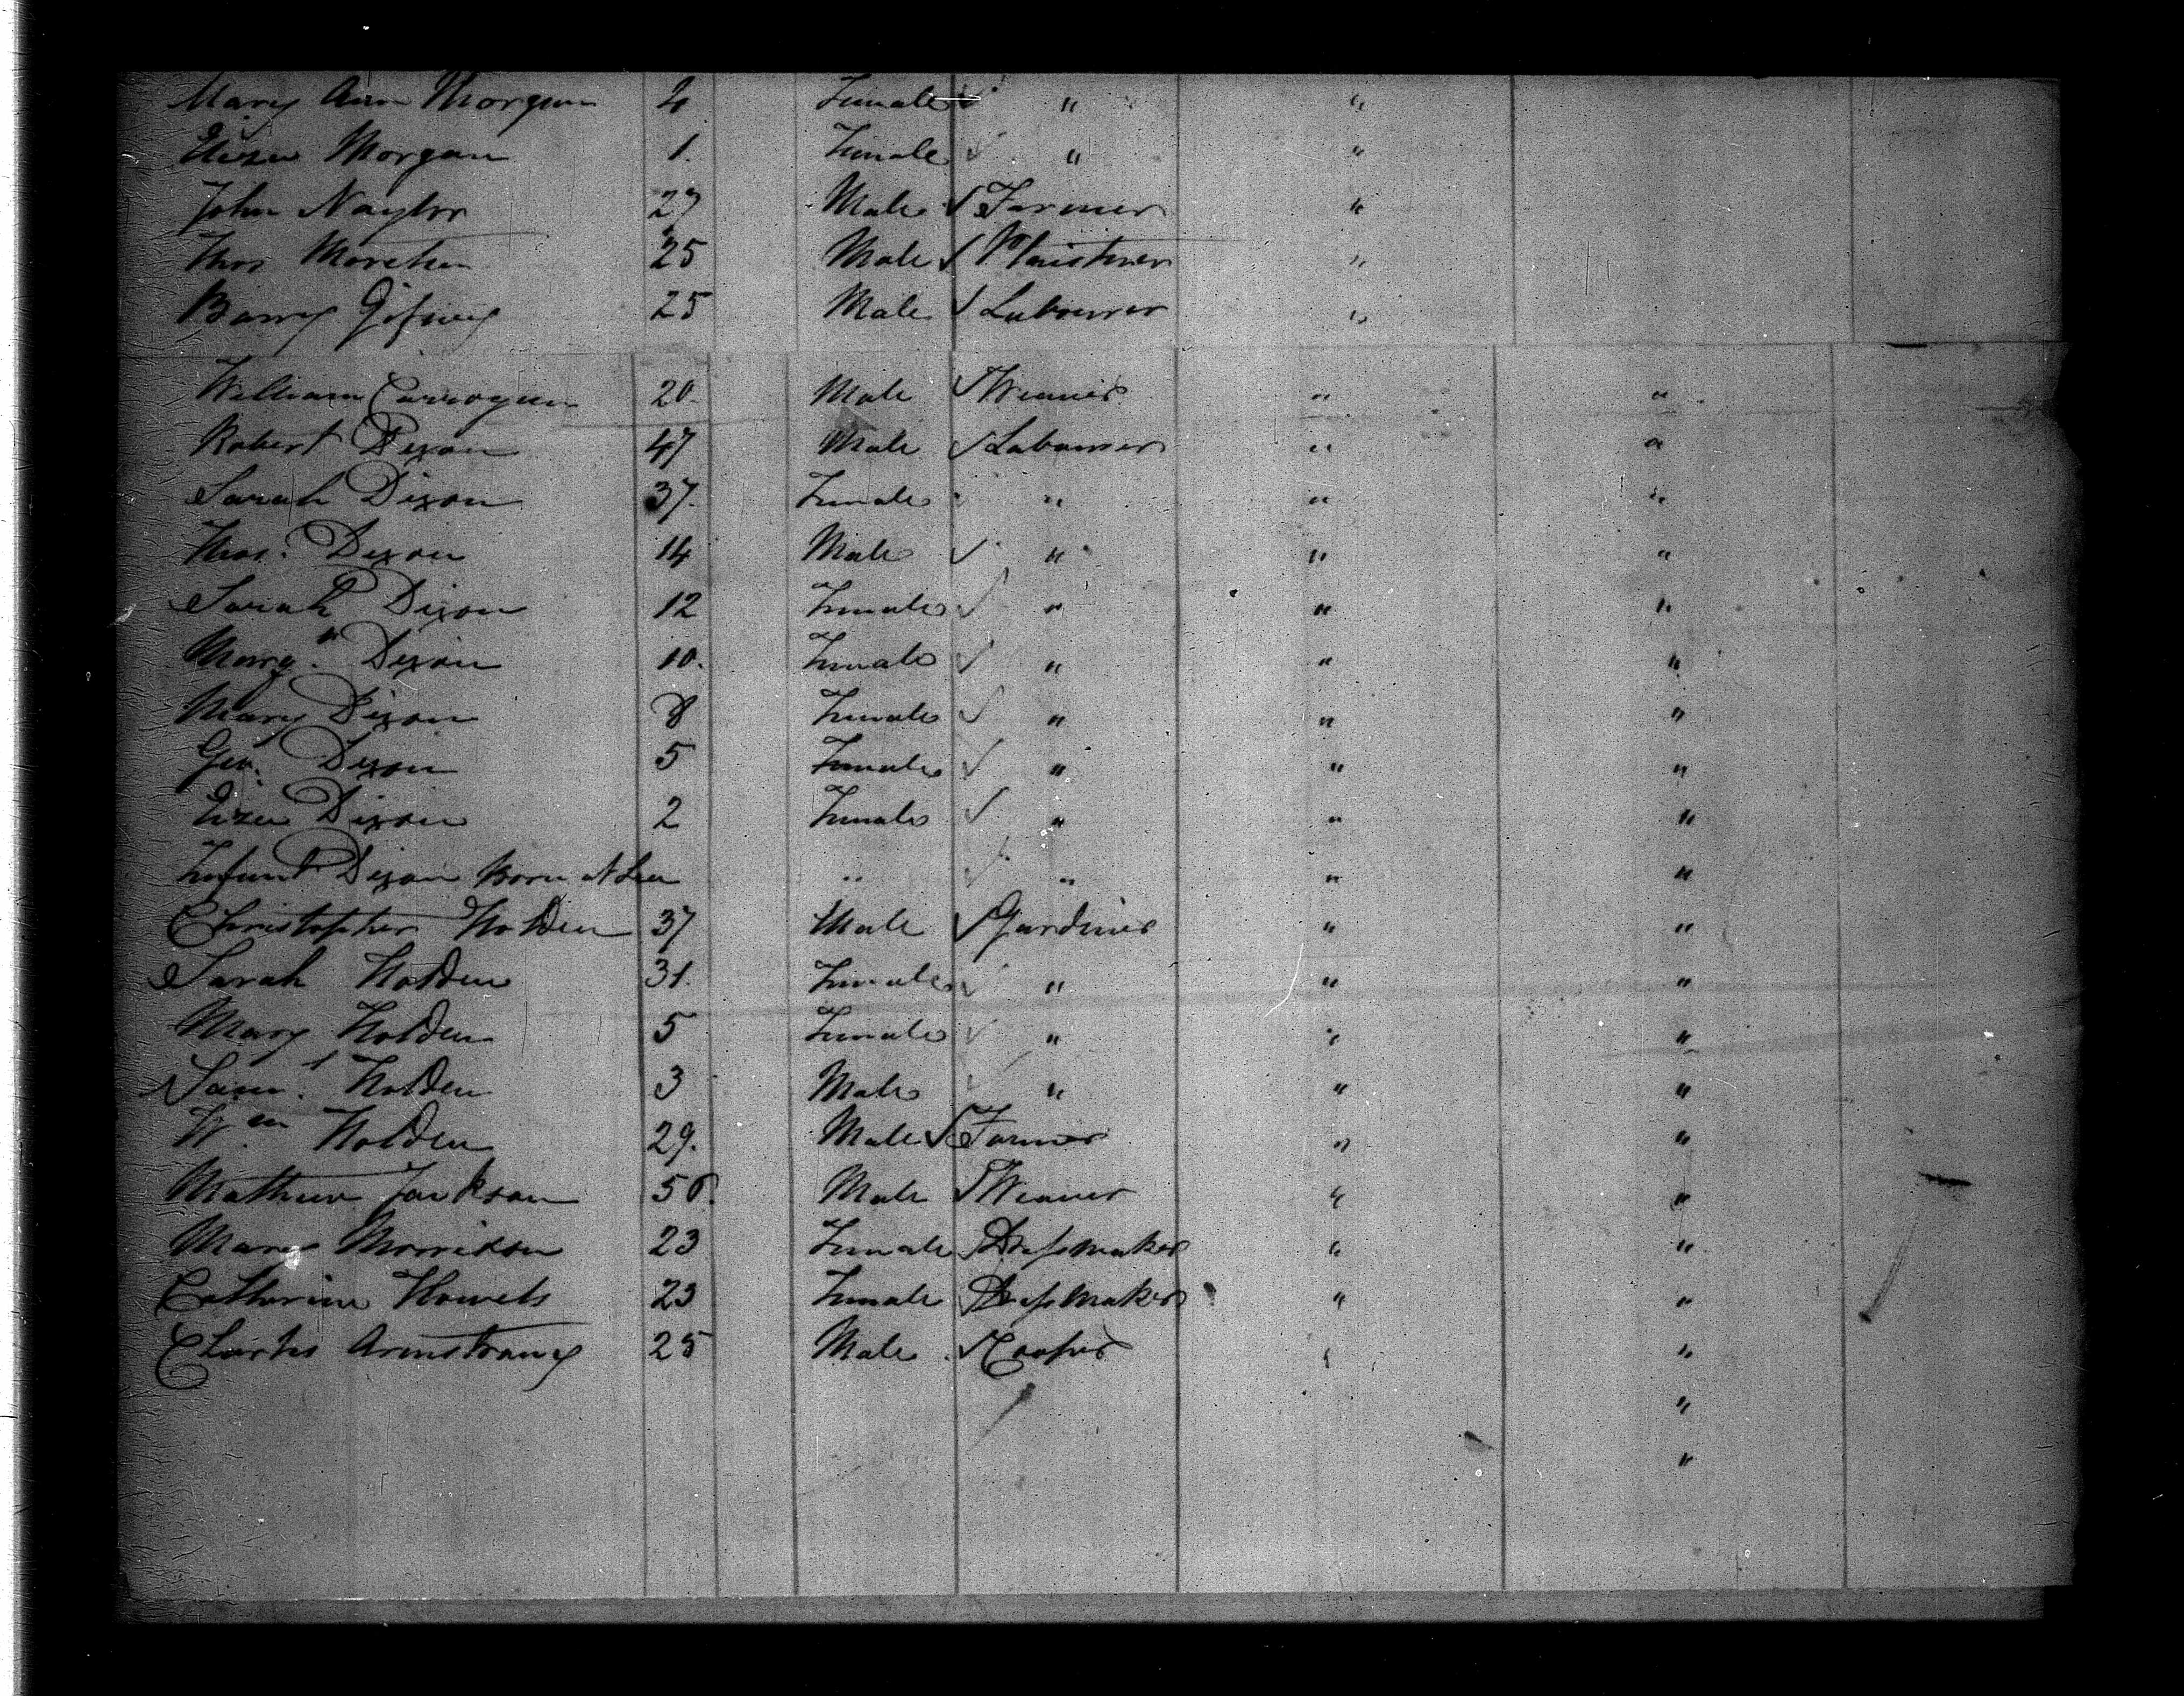 Mary Ann Morgan 4 Female " "
Eliza Morgan 1. Female " "
John Naylor 27 Male Farmer "
Thos 25 Male Plaisterer "
Barry 25 Male Labourer "
William 20. Male Weaver " "
Robert Dixon 47 Male Labourer " "
Sarah Dixon 37. Female " " "
Thos. Dixon 14 Male " " "
Sarah Dixon 12 Female " " "
Marg.t Dixon 10. Female " " "
Mary Dixon 8 Female " " "
Geo. Dixon 5 Female " " "
Eliza Dixon 2 Female " " "
Infant Dixon Born at Sea " " " "
Christopher Holden 37 Male Gardiner " "
Sarah Holden 31. Female " " "
Mary Holden 5 Female " " "
Sam.l Holden 3 Male " " "
Wm Holden 29. Male Farmer " "
Mathew Jackson 50. Male Weaver " "
Mary Morrison 23 Female Dressmaker " "
Catherine Howels 23 Female Dressmaker " "
Charles Armstrong 25 Male Cooper " "
"
"